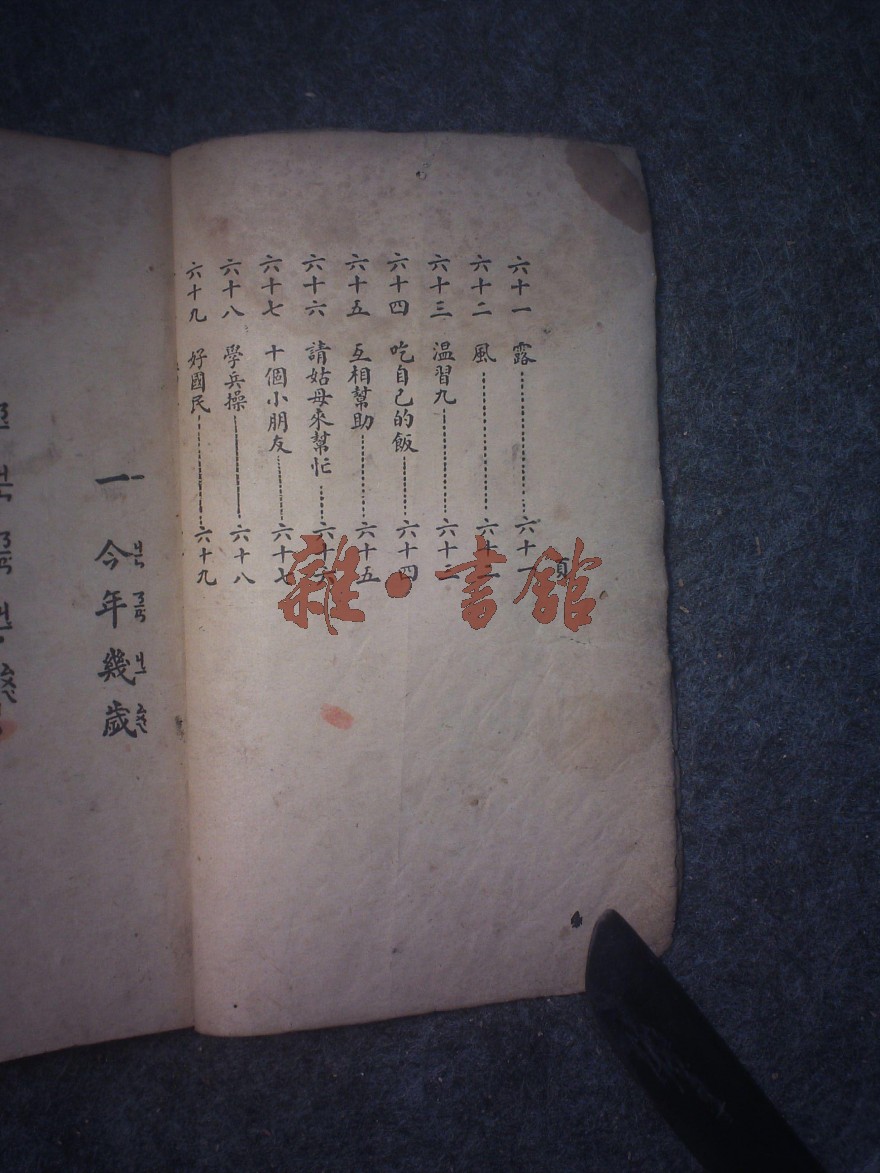 頁
六十一 露………六十一
六十二 風………六十二
六十三 温習九………六十三
六十四 吃自己的飯………六十四
六十五 互相幫助………六十五
六十六 請姑母來幫忙………六十六
六十七 十個小朋友………六十七
六十八 學兵操………六十八
六十九 好國民………六十九
雜·書館
一 今年幾歲